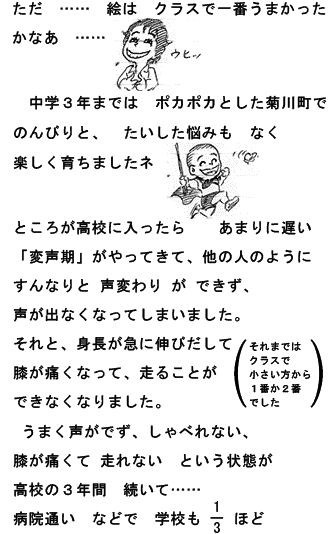 ただ　……　絵は　クラスで一番うまかった
かなあ　……
ウヒッ
中学３年までは　ポカポカとした菊川町で
のんびりと、　たいした悩みも　なく
楽しく育ちましたネ
ところが高校に入ったら　　あまりに遅い
「変声期」がやってきて、他の人のように
すんなりと 声変わり が できず、
声が出なくなってしまいました。
それと、身長が急に伸びだして
膝が痛くなって、走ることが
できなくなりました。
（それまでは
クラスで
小さい方から
１番か２番
でした）
うまく声がでず、しゃべれない、
膝が痛くて 走れない　という状態が
高校の３年間　続いて……
病院通い　などで　学校も 1/3 ほど